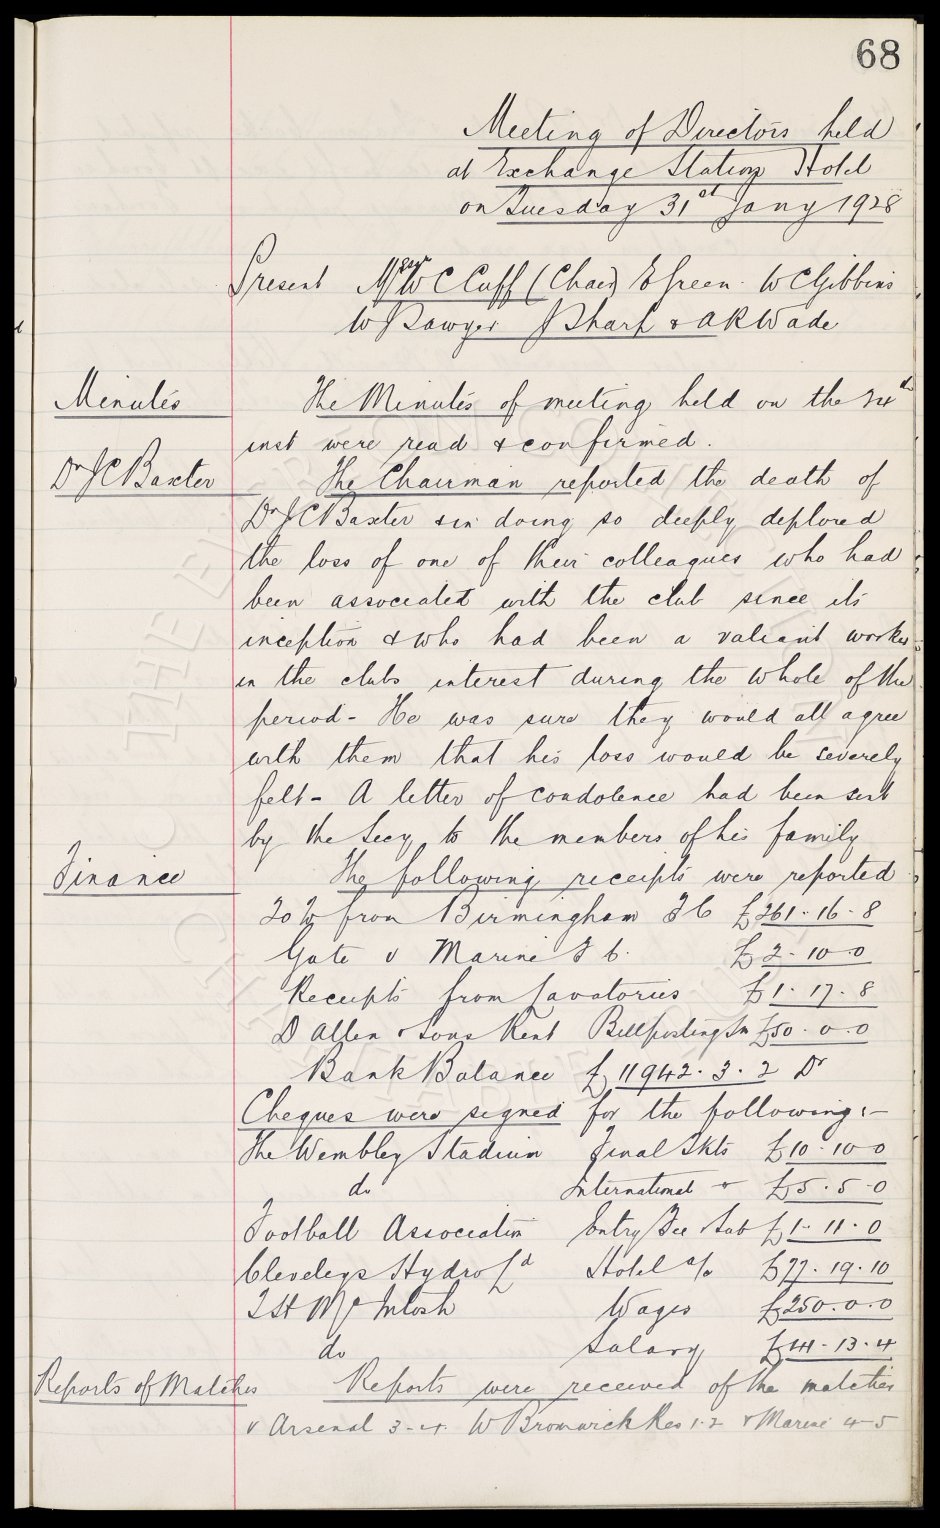 68
Meeting of Directors held
at Exchange Station Hotel
on Tuesday 31st Jany 1928
Present Messrs W C Cuff (Chair) E Green W C Gibbins
W Sawyer J Sharp & A R Wade
Minutes The Minutes of meeting held on the 24th
inst were read & confirmed.
Dr J C Baxter The Chairman reported the death of
Dr J C Baxter & in doing so deeply deplored
the loss of one of their colleagues who had
been associated with the club since its
inception & who had been a valiant worker
in the clubs interest during the whole of the
period - He was sure they would all agree
with them that his loss would be severely
felt - A letter of condolence had been sent
by the Secy to the members of his family
Finance The following receipts were reported
20% from Birmingham F C £261-16-8
Gate v Marine F C. £2-10-0
Receipts from Lavatories £1-17-8
D Allen & Sons Rent Billposting Stn £50-0-0
Bank Balance £11942.3.2 Dr
Cheques were signed for the following:-
The Wembley Stadium Final Tkts £10-10-0
do International " £5.5-0
Football Association Entry Fee & Sub £1-11-0
Cleveleys Hydro Ld Hotel a/c £77-19-10
T H McIntosh Wages £250.0.0
do Salary £41-13-4
Reports of Matches Reports were received of the matches
v Arsenal 3-4. W Bromwich Res 1-2 & Marine 4-5
THE EVERTON